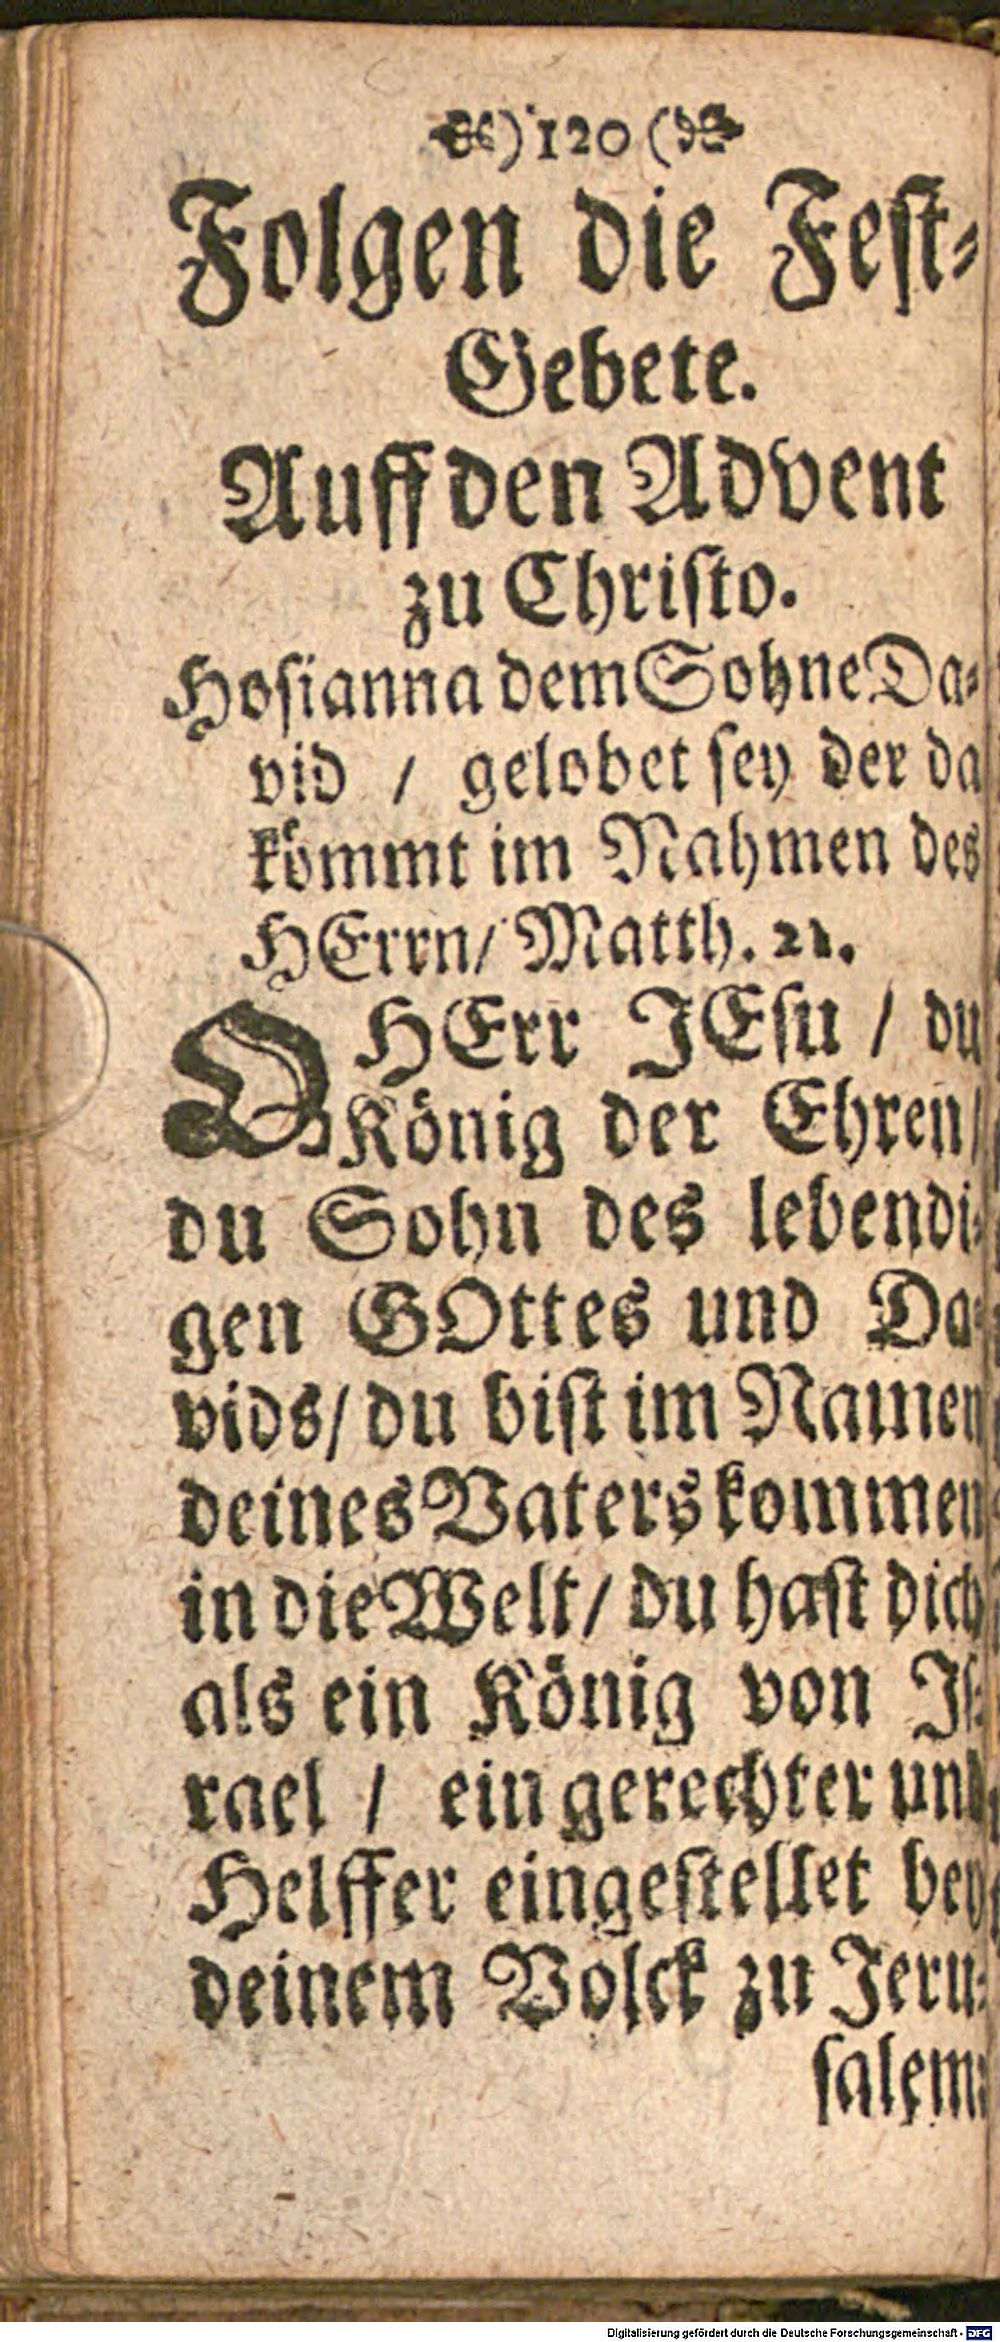 )120(
Folgen die Feſt⸗
Gebete.
Auff den Advent
zu Chriſto.
Hoſianna dem Sohne Da⸗
vid / gelobet ſey der da
kömmt im Nahmen des
HErrn / Matth. 21.
O HErr JEſu / du
König der Ehren /
du Sohn des lebendi⸗
gen GOttes und Da⸗
vids / du biſt im Namen
deines Vaters kommen
in die Welt / du haſt dich
als ein König von Iſ⸗
rael / ein gerechter und
Helffer eingeſtellet bey
deinem Volck zu Jeru⸗
ſalem:
Digitalisierung gefördert durch die Deutsche Forschungsgemeinschaft - DFG